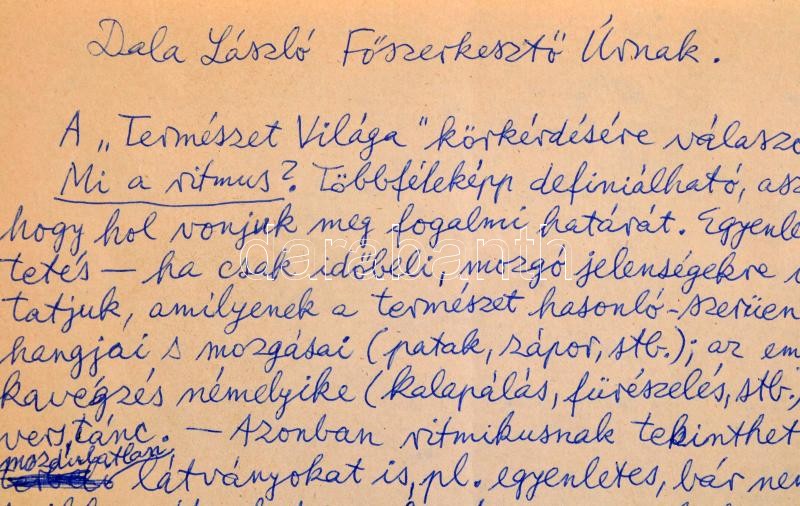 Dala László Főszerkesztő Úrnak.
A „Természet Világa" körkérdésére válaszo
Mi a ritmus? Többféleképp definiálható, asz
hogy hol vonjuk meg fogalmi határát. Egyenle
tetés — ha csak időbeli, mozgó jelenségekre
tatjuk, amilyenek a természet hasonló-szerűen
hangjai s mozgásai (patak, zápor, stb.); az em
kavégzés némelyike (kalapálás, fűrészelés, stb.,
vers, tánc. — Azonban ritmikusnak tekinthet
mozdulatlan
látványokat is, pl. egyenletes, bár nem
darabanth